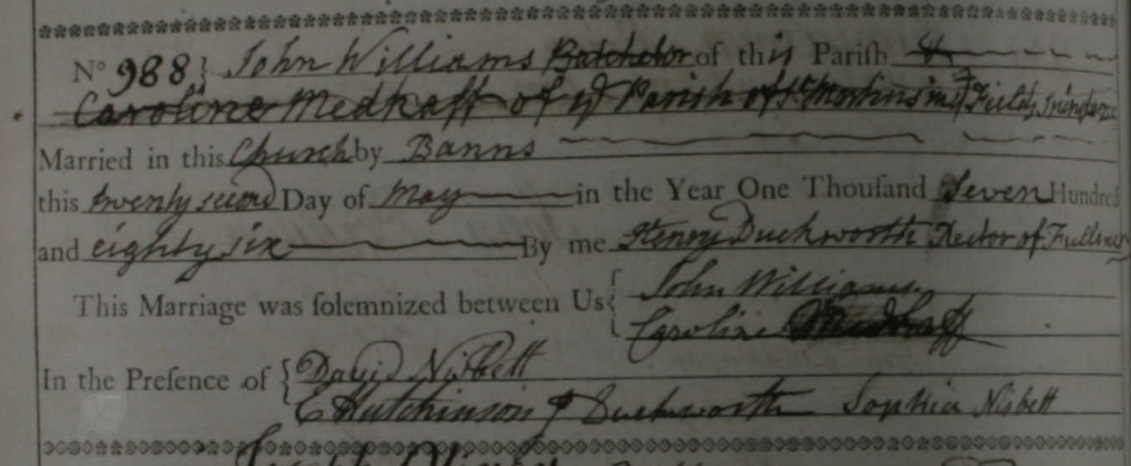 No 988 } John Williams Batchelor of this Parish &
Caroline Medhaff of ye Parish of St Martins in ye Fields
Married in this Church by Banns
this twenty second Day of May in the Year One Thouſand Seven Hundred
and eighty six By me Henry Duckworth Rector of
This Marriage was ſolemnized between Us { John Williams
Caroline
In the Preſence of { David Nisbett
E Hutchinson J Duckworth Sophia Nisbett